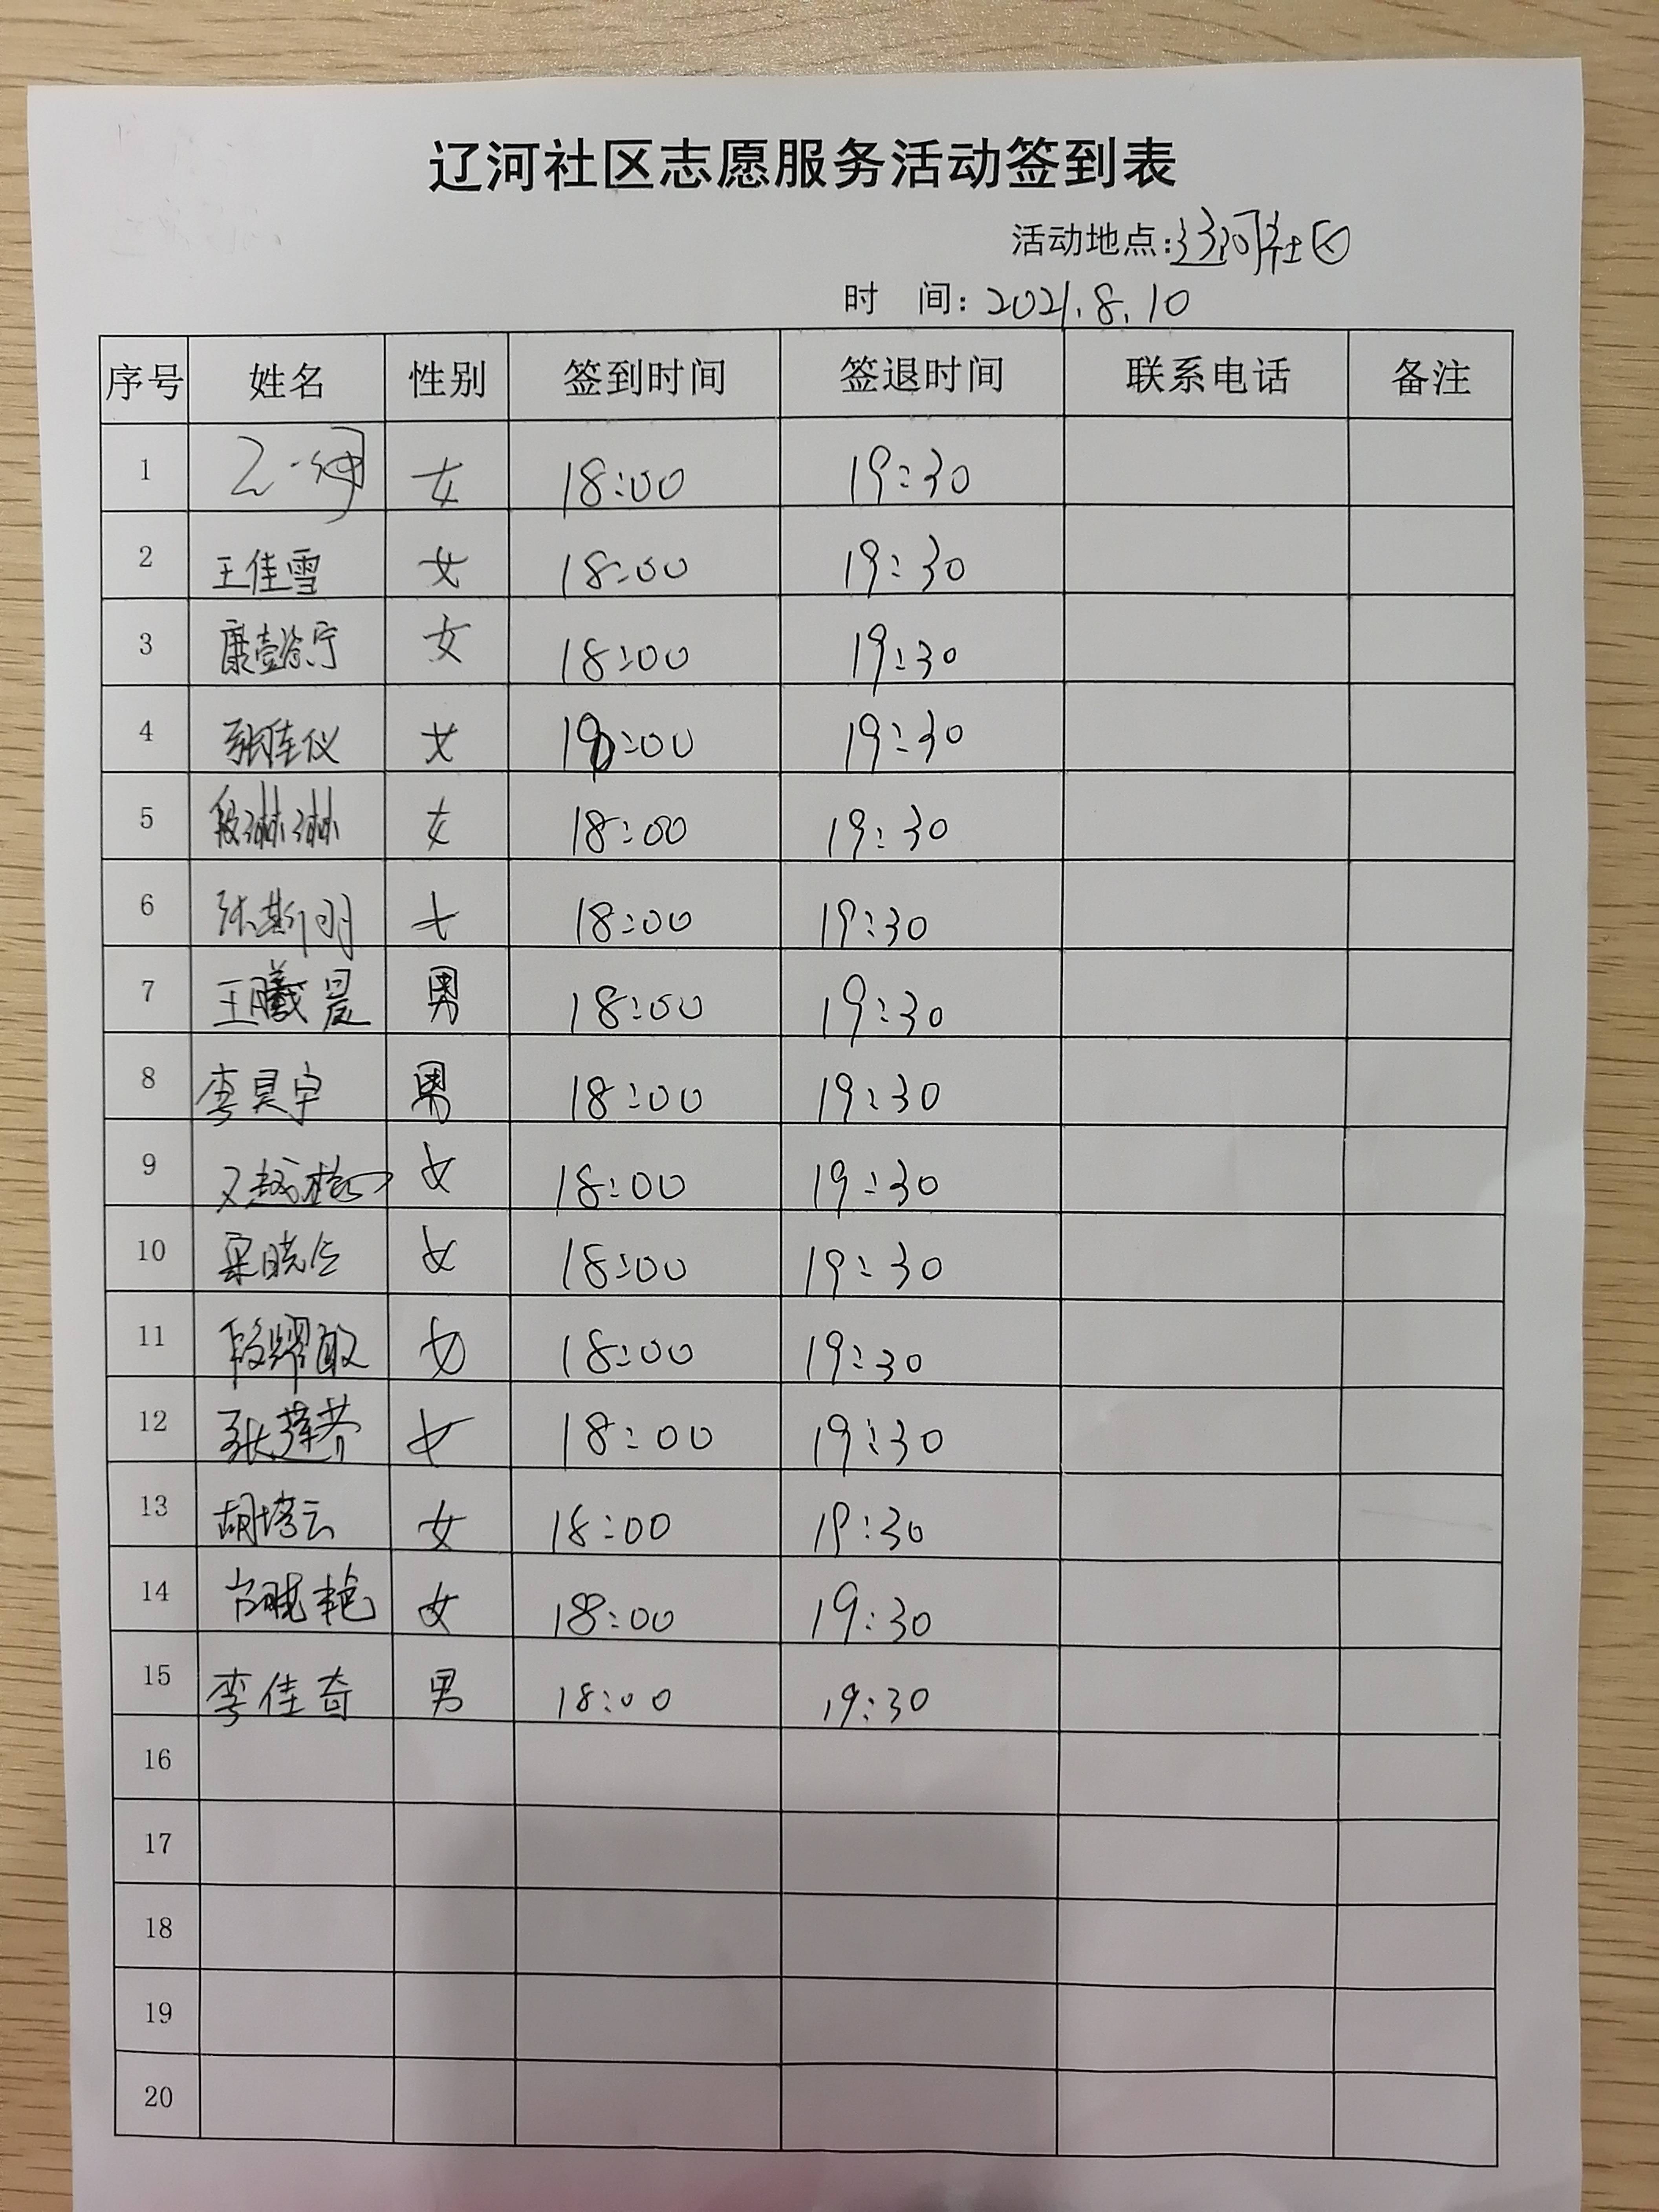 辽河社区志愿服务活动签到表
活动地点:辽河社区
时 间: 2021.8.10
序号 姓名 性别 签到时间 签退时间 联系电话 备注
1 女 18:00 19:30
2 王佳雪 女 18:00 19:30
3 女 18:00 19:30
4 张佳仪 女 18:00 19:30
5 段琳琳 女 18:00 19:30
6 张斯明 女 18:00 19:30
7 王曦晨 男 18:00 19:30
8 李昊宇 男 18:00 19:30
9 女 18:00 19:30
10 女 18:00 19:30
11 段耀敏 女 18:00 19:30
12 女 18:00 19:30
13 女 18:00 19:30
14 女 18:00 19:30
15 李佳奇 男 18:00 19:30
16
17
18
19
20